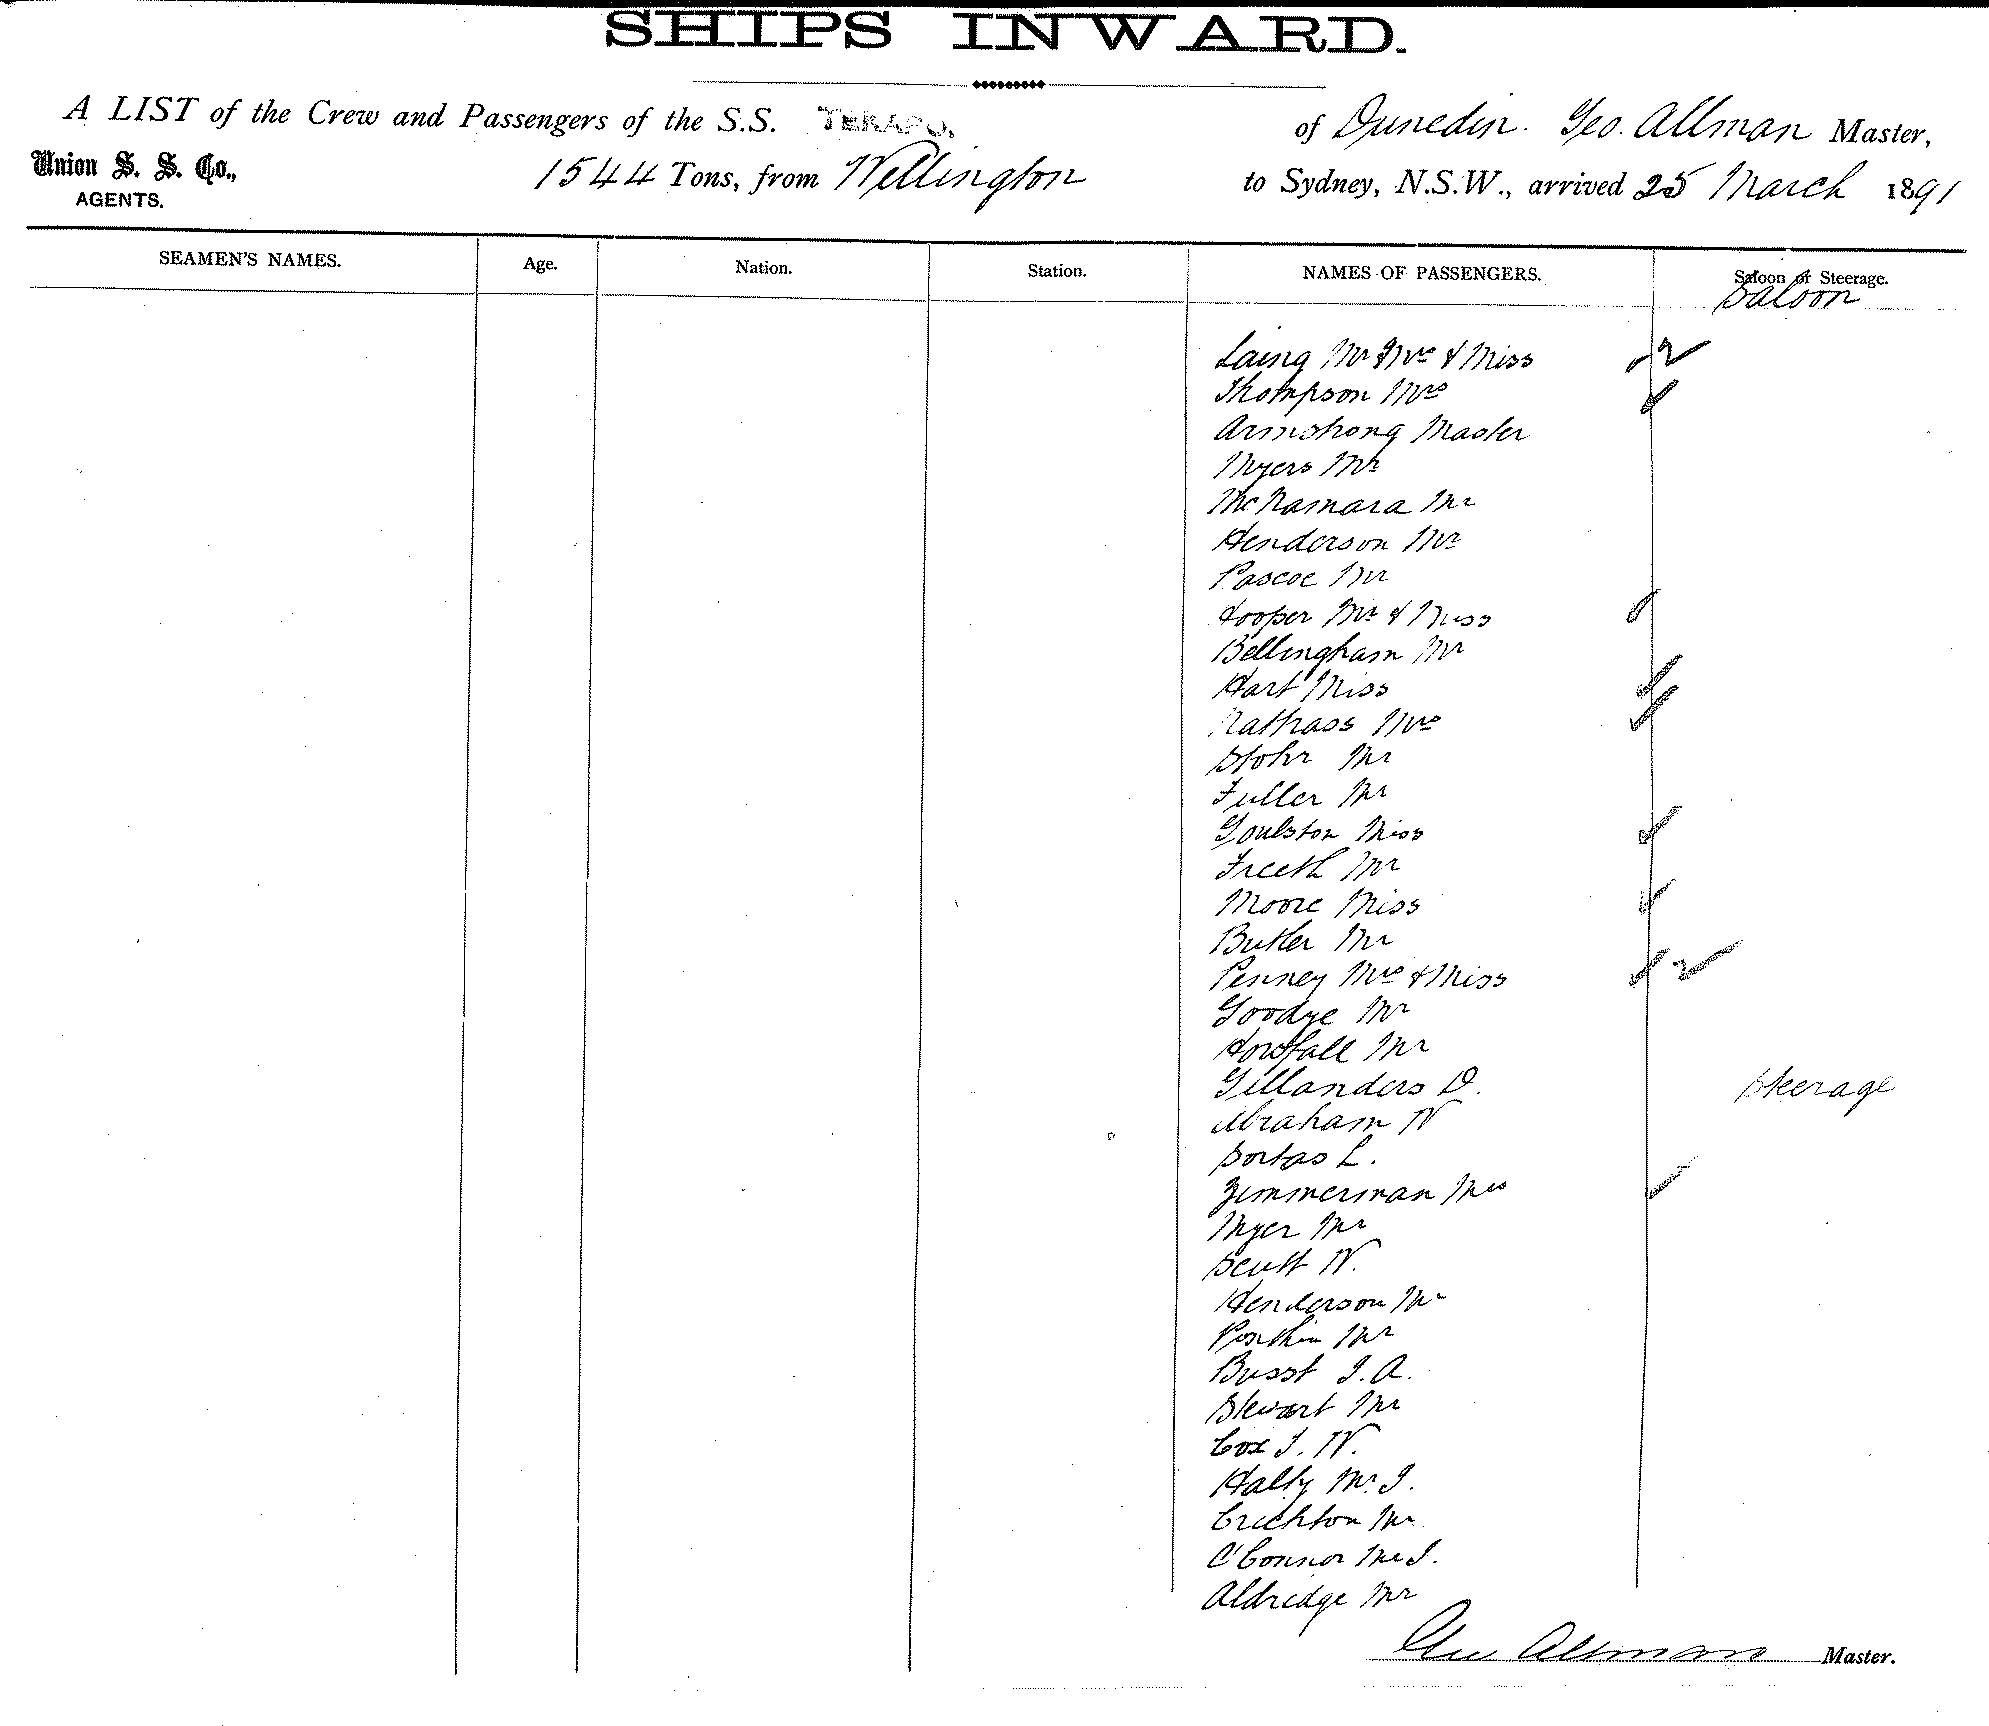 SHIPS INWARD.
A LIST of the Crew and Passengers of the S.S. TEKAPO, of Dunedin. Geo. Allman Master,
Union S. S. Co., AGENTS. 1544 Tons, from Wellington to Sydney, N.S.W., arrived 25 March 1891
SEAMEN'S NAMES. Age. Nation. Station. NAMES OF PASSENGERS. Saloon or Steerage.
Saloon
Laing Mr Mrs & Miss 2
Thompson Mrs
Armstrong Master
Myers Mr
McNamara Mr
Henderson Mr
Pascoe Mr
Hooper Mr & Miss
Bellingham Mr
Hart Miss
Mrs
Stohr Mr
Fuller Mr
Goulston Miss
Freeth Mr
Moore Miss
Butler Mr
Penney Mrs & Miss 2
Goodye Mr
Horsfall Mr
Gillanders D. Steerage
Abraham W
L.
Zimmerman Mrs
Myer Mr
Scott W.
Henderson Mr
Mr
Busst J.A.
Stewart Mr
Cox J. W.
Hally Mr J.
Crichton Mr
O'Connor Mr J.
Aldridge Mr
Geo Allman Master.